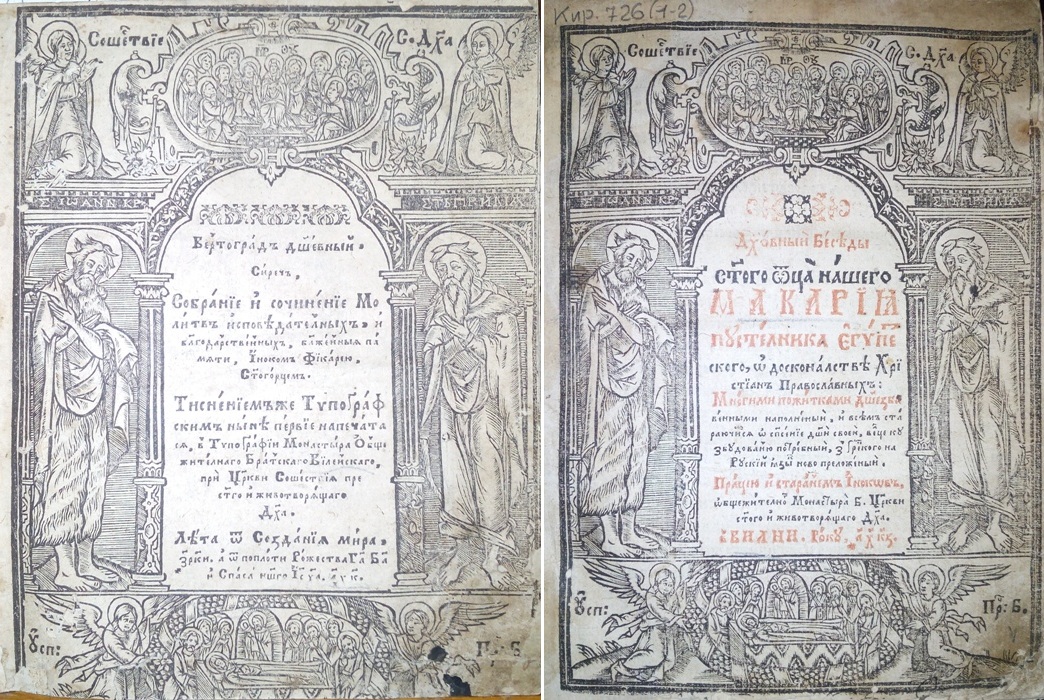 Сошествїе
С. Дх҃а
С ІѠАНН КР
Вертоградъ дш҃евный.
Сирѣчь,
Собранїе и҆ сочиненїе Мо
литвъ и҆сповѣдателныхъ, и
благодарственныхъ, блаженныя па
мяти, І҆нокомъ Фїкарею,
Ст҃огорцемъ.
Тисненїемъ же Тѵпоґраф
скимъ нн҃ѣ первїе напечата
ся, в Тѵпоґрафїи Монастыра О҆бще
жителнаго Братскаго Вїленскаго,
при Цр҃кви Сошествїя пре
ст҃го и животворящаго
Дх҃а.
Лѣта ѿ Созданїя мира,
҂зрки. а ѿ поплоти Рожества Гд҃а Бг҃а
и Спаса нш҃го Іс҃ѵ Ха, ҂ахк.
Ѹ҆сп:
Пр: Б
Кир. 726 (1-2)
Сошествїе
С. Дх҃а
С ІѠАНН КР
Дх҃овныи Бесѣды
ст҃ого ѿц҃а нашего
МАКАРІЯ
пустелника Еґѵпе
ского, ѡ досконалствѣ Хрї
стїанъ Православныхъ:
Многими пожитками дш҃евъ
венными наполненыи, и всѣмъ ста
раючимся ѡ сп҃сенїе дш҃и своеи, вѣце ку
збудованю потребныи, з Грецкого на
Рускїй ꙗ҆зыкъ ново преложеныи.
Працею и старанїемъ Иноковъ,
ѡбщежителного Монастыра Б. Цр҃кви
ст҃ого и животворящаго Дх҃а.
в ВИЛНИ. Року, ҂ахкз.
Ѹ҆сп:
Пр: Б.